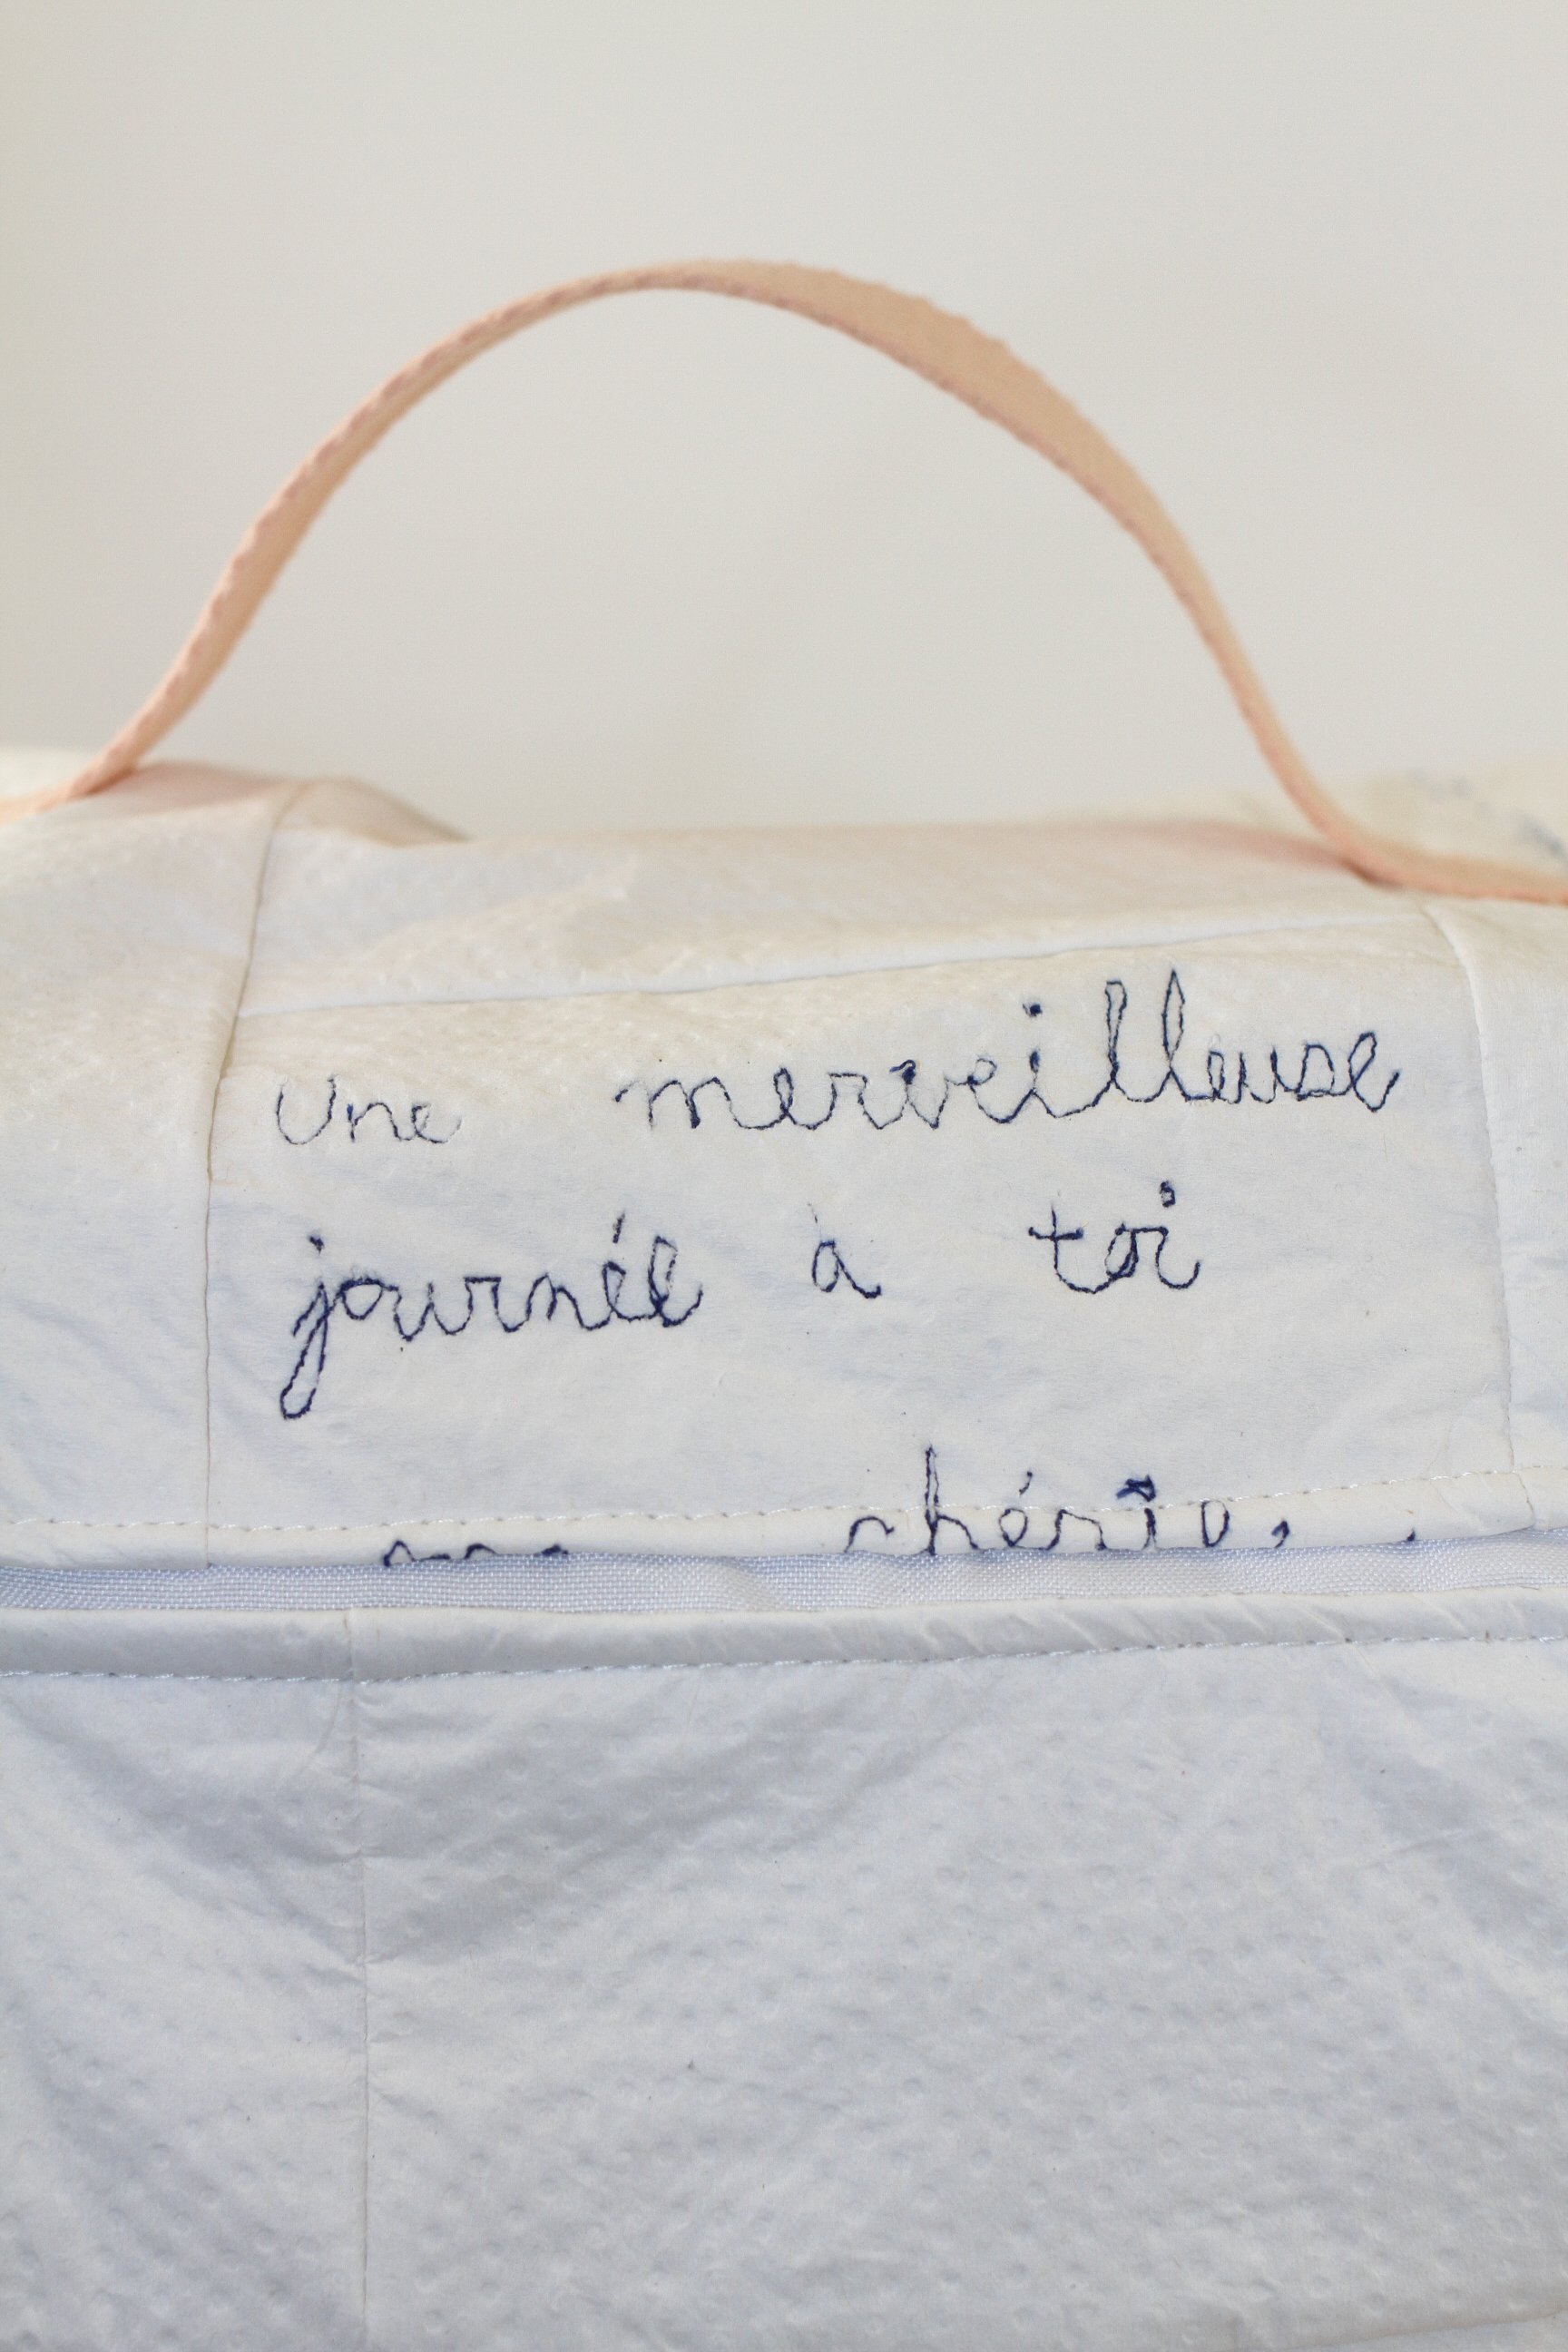 Une merveilleuse
journée à toi
ma chérie.